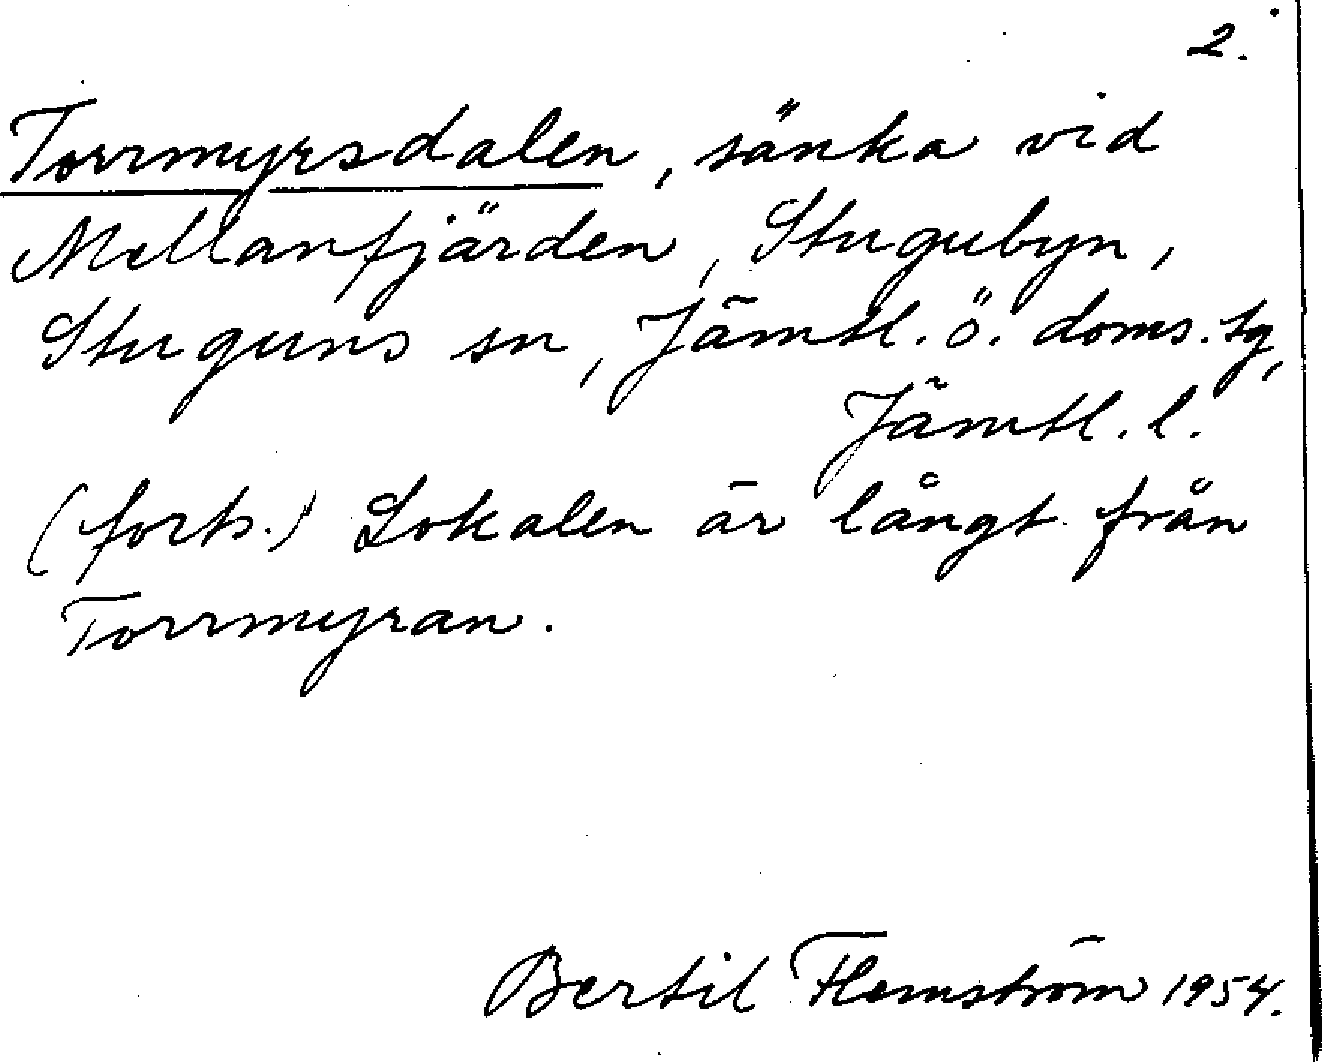 2.
Torrmyrsdalen, sänka vid
Mellanfjärden, Stugubyn,
Stuguns sn, Jämtl. ö. doms. tg,
Jämtl. l.
(forts.) Lokalen är långt från
Torrmyran.
Bertil Flemström 1954.